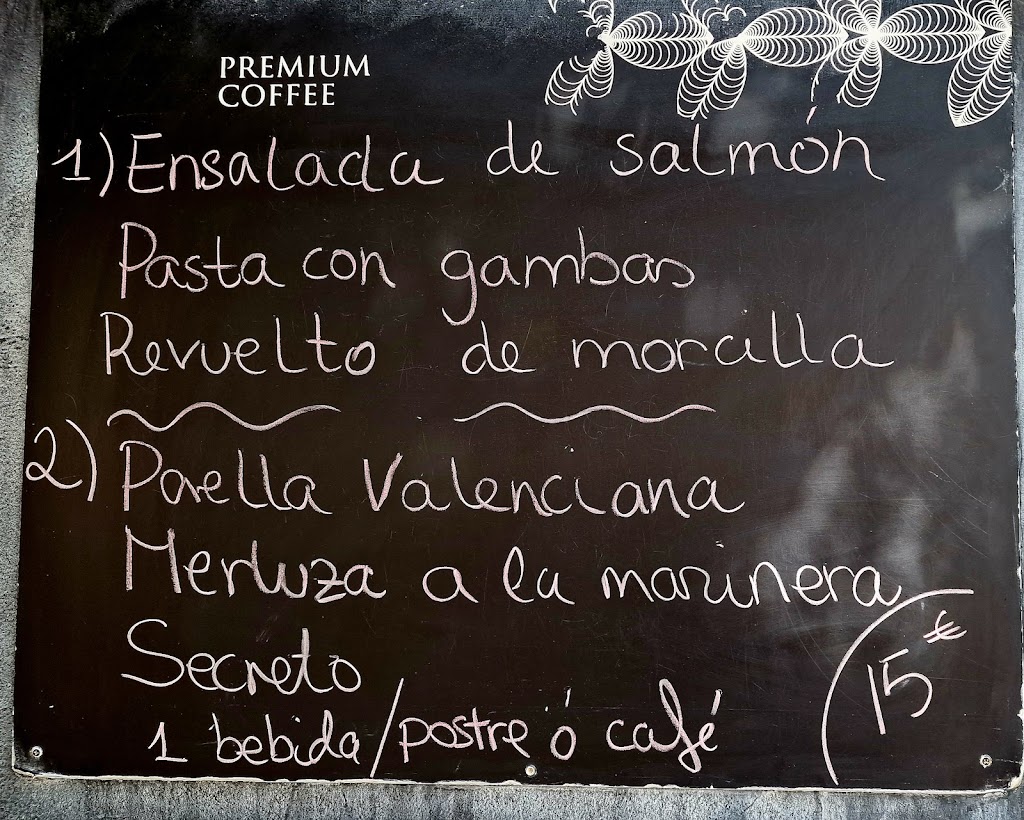 PREMIUM
COFFEE
1) Ensalada de salmón
Pasta con gambas
Revuelto de morcilla
2) Paella Valenciana
Merluza a la marinera
Secreto
1 bebida/postre ó café
15 €